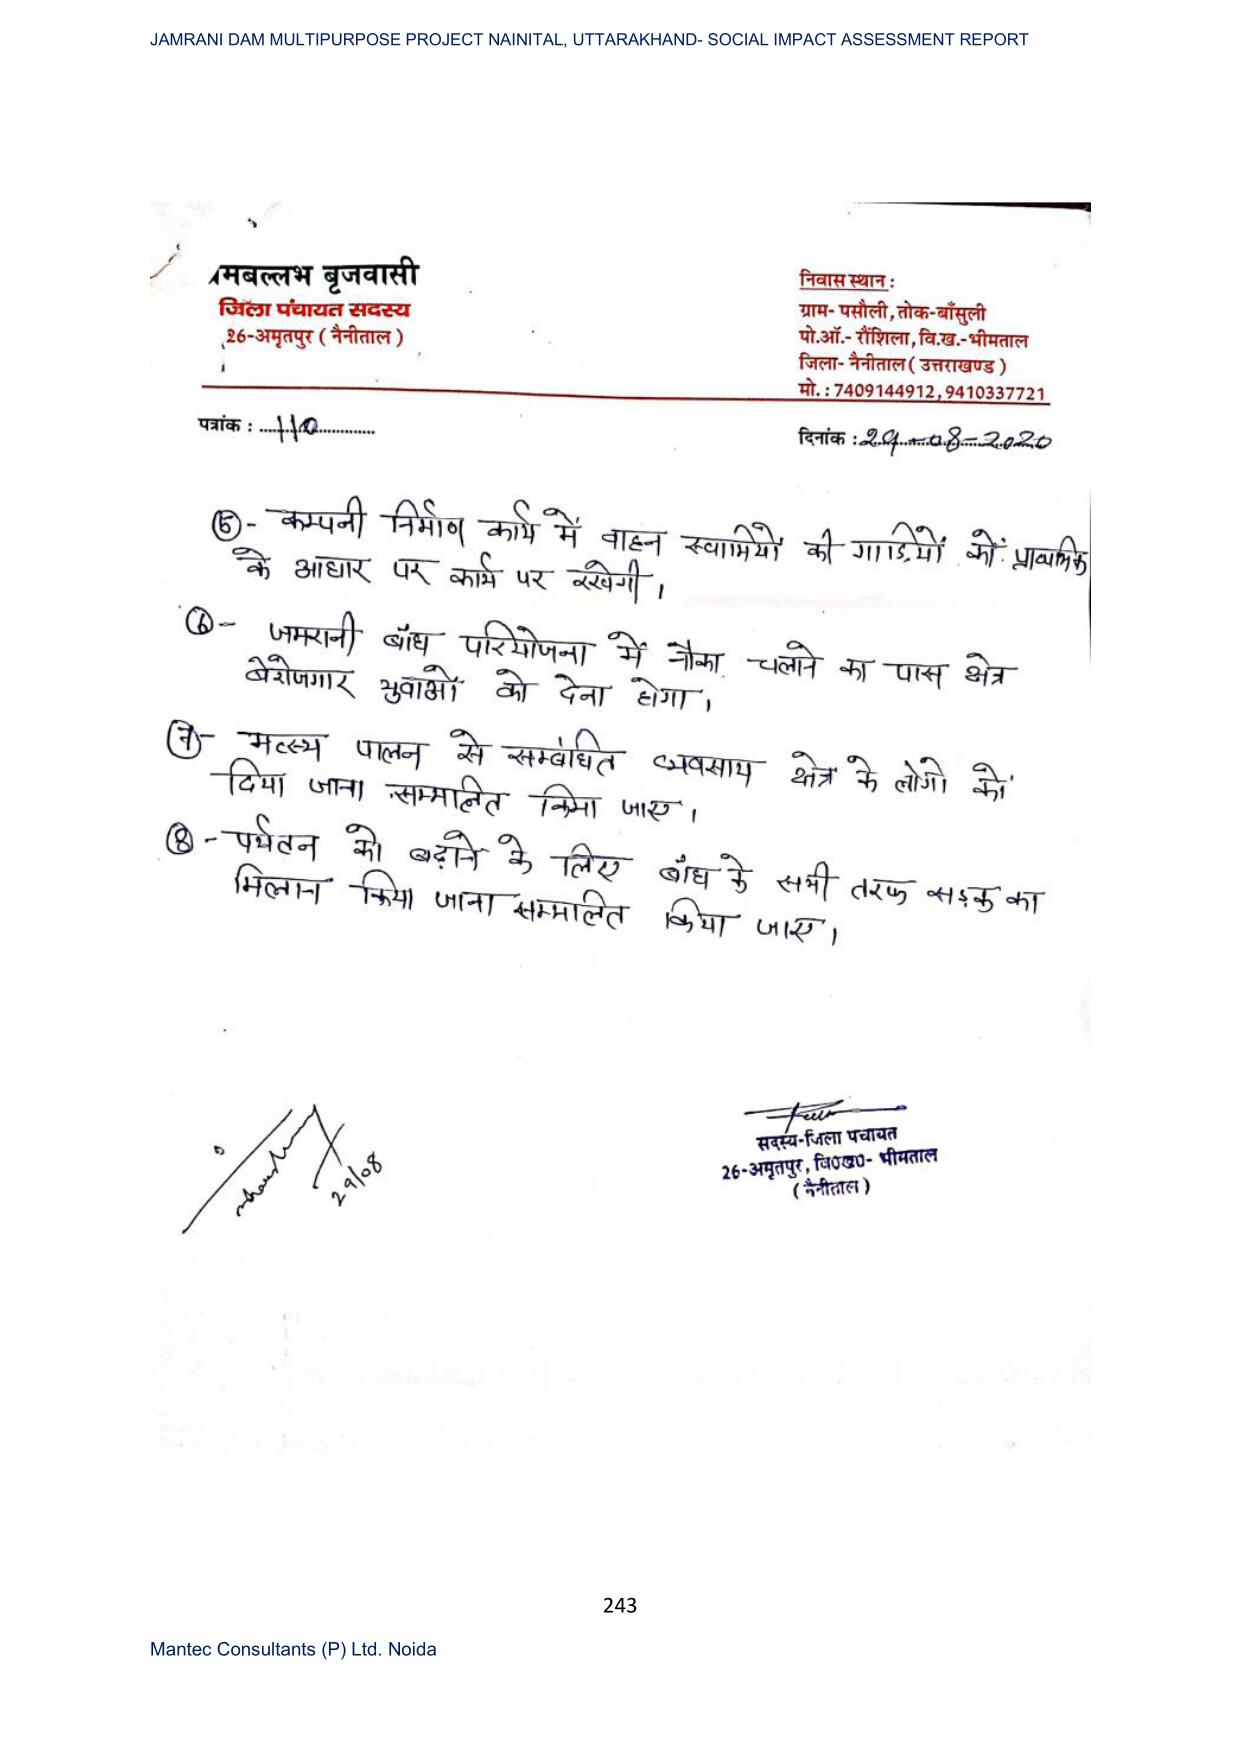 JAMRANI DAM MULTIPURPOSE PROJECT NAINITAL, UTTARAKHAND- SOCIAL IMPACT ASSESSMENT REPORT
ामबल्लभ बृजवासी
जिला पंचायत सदस्य
26-अमृतपुर ( नैनीताल )
निवास स्थान :
ग्राम- पसौली, तोक-बाँसुली
पो.ऑ.- रौंशिला, वि.ख.-भीमताल
जिला- नैनीताल ( उत्तराखण्ड )
मो. : 7409144912, 9410337721
पत्रांक : 110
दिनांक : 29-08-2020
5- कम्पनी निर्माण कार्य में वाहन स्वामियों की गाड़ियों कों प्राथमिक
के आधार पर कार्य पर रखेगी।
6- जमरानी बाँध परियोजना में नौका चलाने का पास क्षेत्र
बेरोजगार युवाओं को देना होगा।
7- मत्स्य पालन से सम्बंधित व्यवसाय क्षेत्र के लोगो कों
दिया जाना सम्मालित किया जाए।
8- पर्यटन को बढ़ाने के लिए बाँध के सभी तरफ सड़क का
मिलान किया जाना सम्मालित किया जाए।
29/08
सदस्य-जिला पंचायत
26-अमृतपुर, वि0ख0- भीमताल
( नैनीताल )
243
Mantec Consultants (P) Ltd. Noida